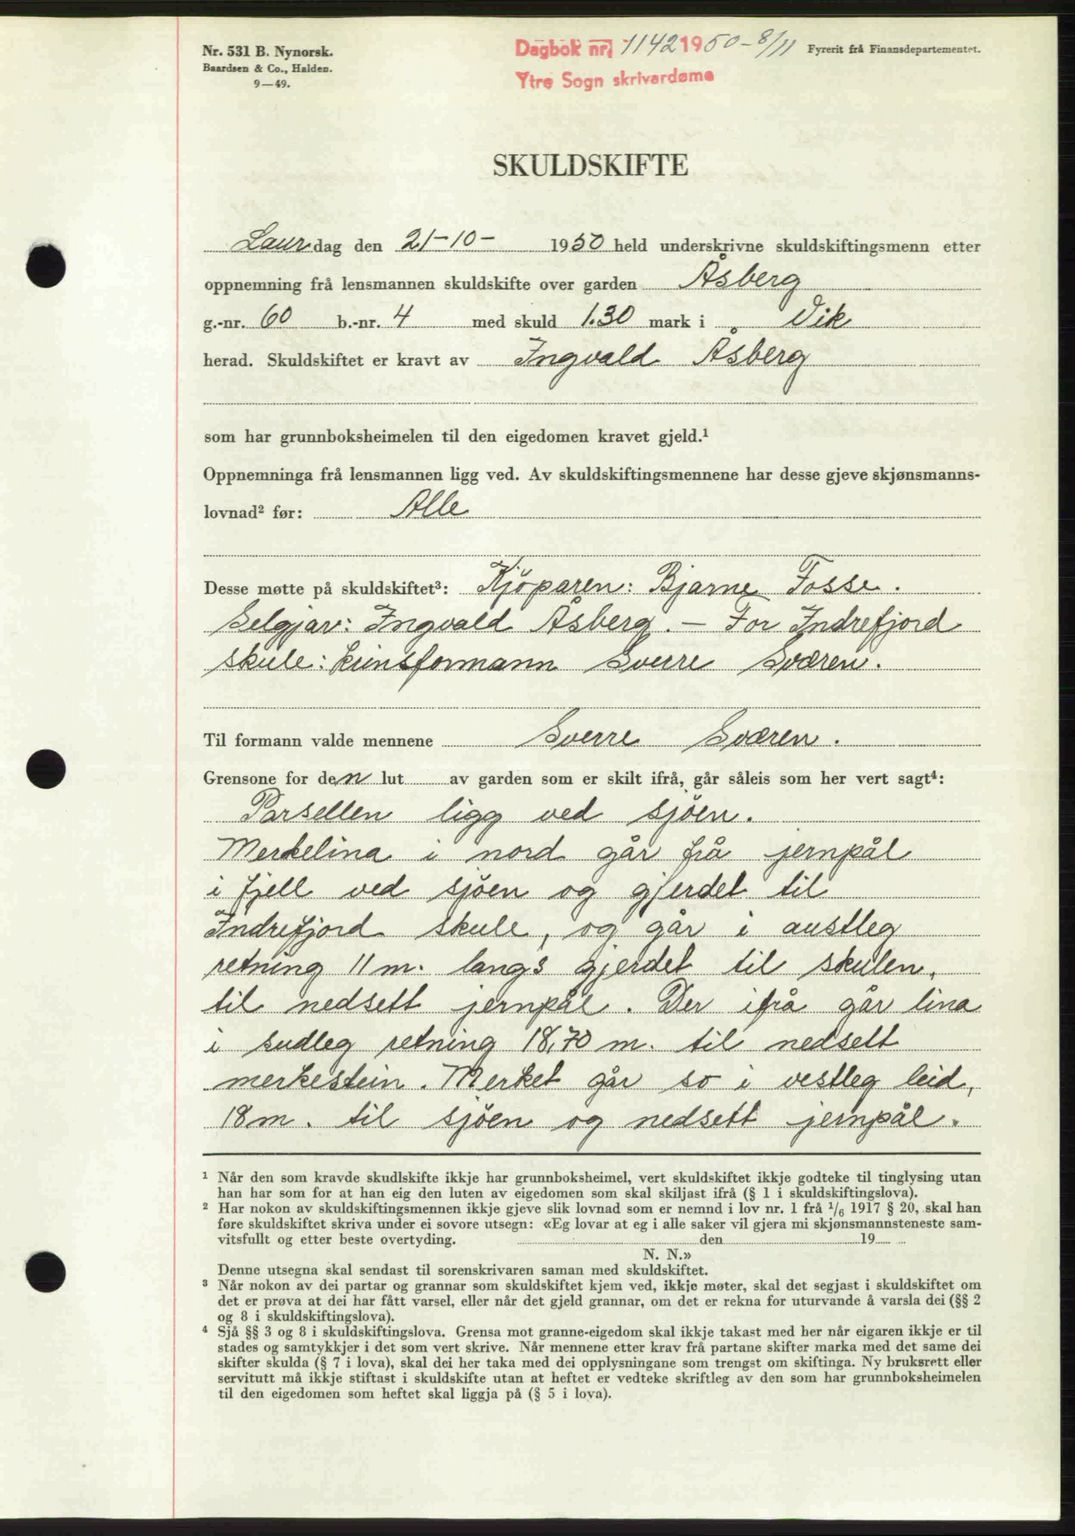 Nr. 531 B. Nynorsk.
Baardsen & Co., Halden.
9—49.
Dagbok nr. 1142 1950 - 8/11
Ytre Sogn skrivardøme
Fyrerit frå Finansdepartementet.
SKULDSKIFTE
Laurdag den 21-10- 1950 held underskrivne skuldskiftingsmenn etter
oppnemning frå lensmannen skuldskifte over garden Åsberg
g.-nr. 60 b.-nr. 4 med skuld 1.30 mark i Vik
herad. Skuldskiftet er kravt av Ingvald Åsberg
som har grunnboksheimelen til den eigedomen kravet gjeld.¹
Oppnemninga frå lensmannen ligg ved. Av skuldskiftingsmennene har desse gjeve skjønsmanns-
lovnad² før: Alle
Desse møtte på skuldskiftet³: Kjöparen: Bjarne Fosse.
Selgjar: Ingvald Åsberg. — For Indrefjord
skule: krinsformann Sverre Sværen.
Til formann valde mennene Sverre Sværen.
Grensone for den lut av garden som er skilt ifrå, går såleis som her vert sagt⁴:
Parsellen ligg ved sjöen.
Merkelina i nord går frå jernpål
i fjell ved sjöen og gjerdet til
Indrefjord skule, og går i austleg
retning 11 m. langs gjerdet til skulen,
til nedsett jernpål. Der ifrå går lina
i sudleg retning 18,70 m. til nedsett
merkestein. Merket går so i vestleg leid,
18 m. til sjöen og nedsett jernpål.
¹ Når den som kravde skudlskifte ikkje har grunnboksheimel, vert skuldskiftet ikkje godteke til tinglysing utan
han har som for at han eig den luten av eigedomen som skal skiljast ifrå (§ 1 i skuldskiftingslova).
² Har nokon av skuldskiftingsmennen ikkje gjeve slik lovnad som er nemnd i lov nr. 1 frå 1/6 1917 § 20, skal han
føre skuldskiftet skriva under ei sovore utsegn: «Eg lovar at eg i alle saker vil gjera mi skjønsmannsteneste sam-
vitsfullt og etter beste overtyding. den 19
N. N.»
Denne utsegna skal sendast til sorenskrivaren saman med skuldskiftet.
³ Når nokon av dei partar og grannar som skuldskiftet kjem ved, ikkje møter, skal det segjast i skuldskiftet om
det er prøva at dei har fått varsel, eller når det gjeld grannar, om det er rekna for uturvande å varsla dei (§§ 2
og 8 i skuldskiftingslova).
⁴ Sjå §§ 3 og 8 i skuldskiftingslova. Grensa mot granne-eigedom skal ikkje takast med her når eigaren ikkje er til
stades og samtykkjer i det som vert skrive. Når mennene etter krav frå partane skifter marka med det same dei
skifter skulda (§ 7 i lova), skal dei her taka med dei opplysningane som trengst om skiftinga. Ny bruksrett eller
servitutt må ikkje stiftast i skuldskifte utan at heftet er vedteke skriftleg av den som har grunnboksheimelen
til den eigedomen som heftet skal liggja på (§ 5 i lova).